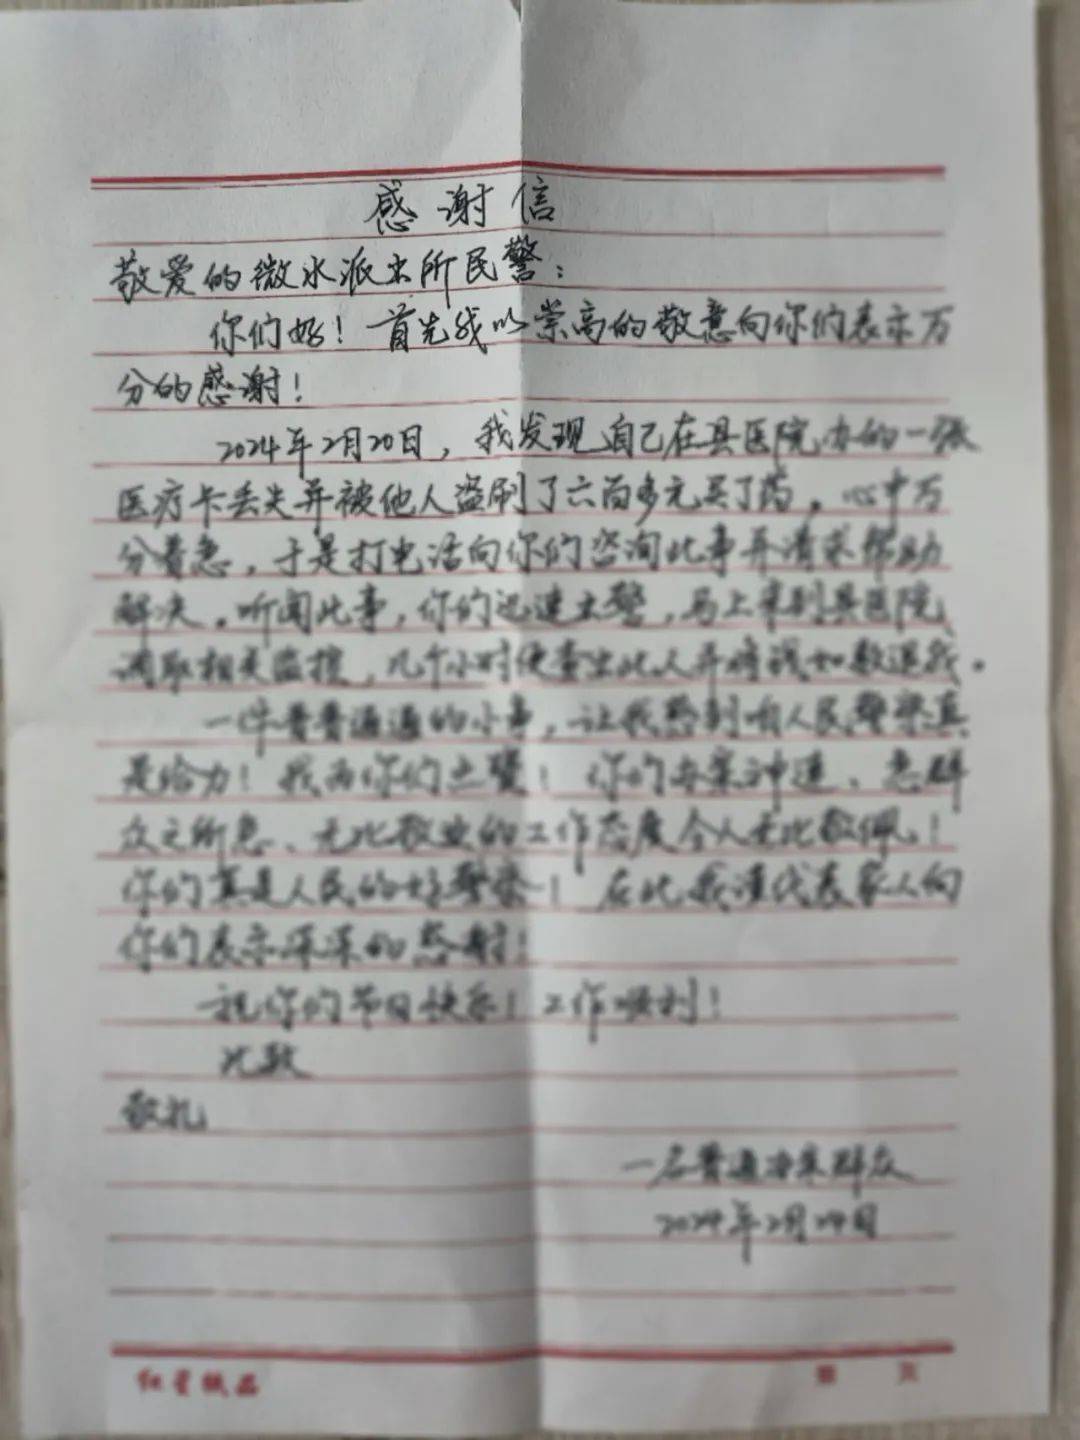 感谢信
敬爱的微水派出所民警：
你们好！首先我以崇高的敬意向你们表示万
分的感谢！
2024年2月20日，我发现自己在县医院办的一张
医疗卡丢失并被他人盗刷了六百多元买了药，心中万
分着急，于是打电话向你们咨询此事并请求帮助
解决。听闻此事，你们迅速出警，马上来到县医院
调取相关监控，几个小时便查出此人并将钱如数退我。
一件普普通通的小事，让我感到咱人民警察真
是给力！我为你们点赞！你们办案神速、急群
众之所急、无比敬业的工作态度令人无比敬佩！
你们真是人民的好警察！在此我谨代表家人向
你们表示深深的感谢！
祝你们节日快乐！工作顺利！
此致
敬礼
一名普通办案群众
2024年2月24日
红星纸品
第 页